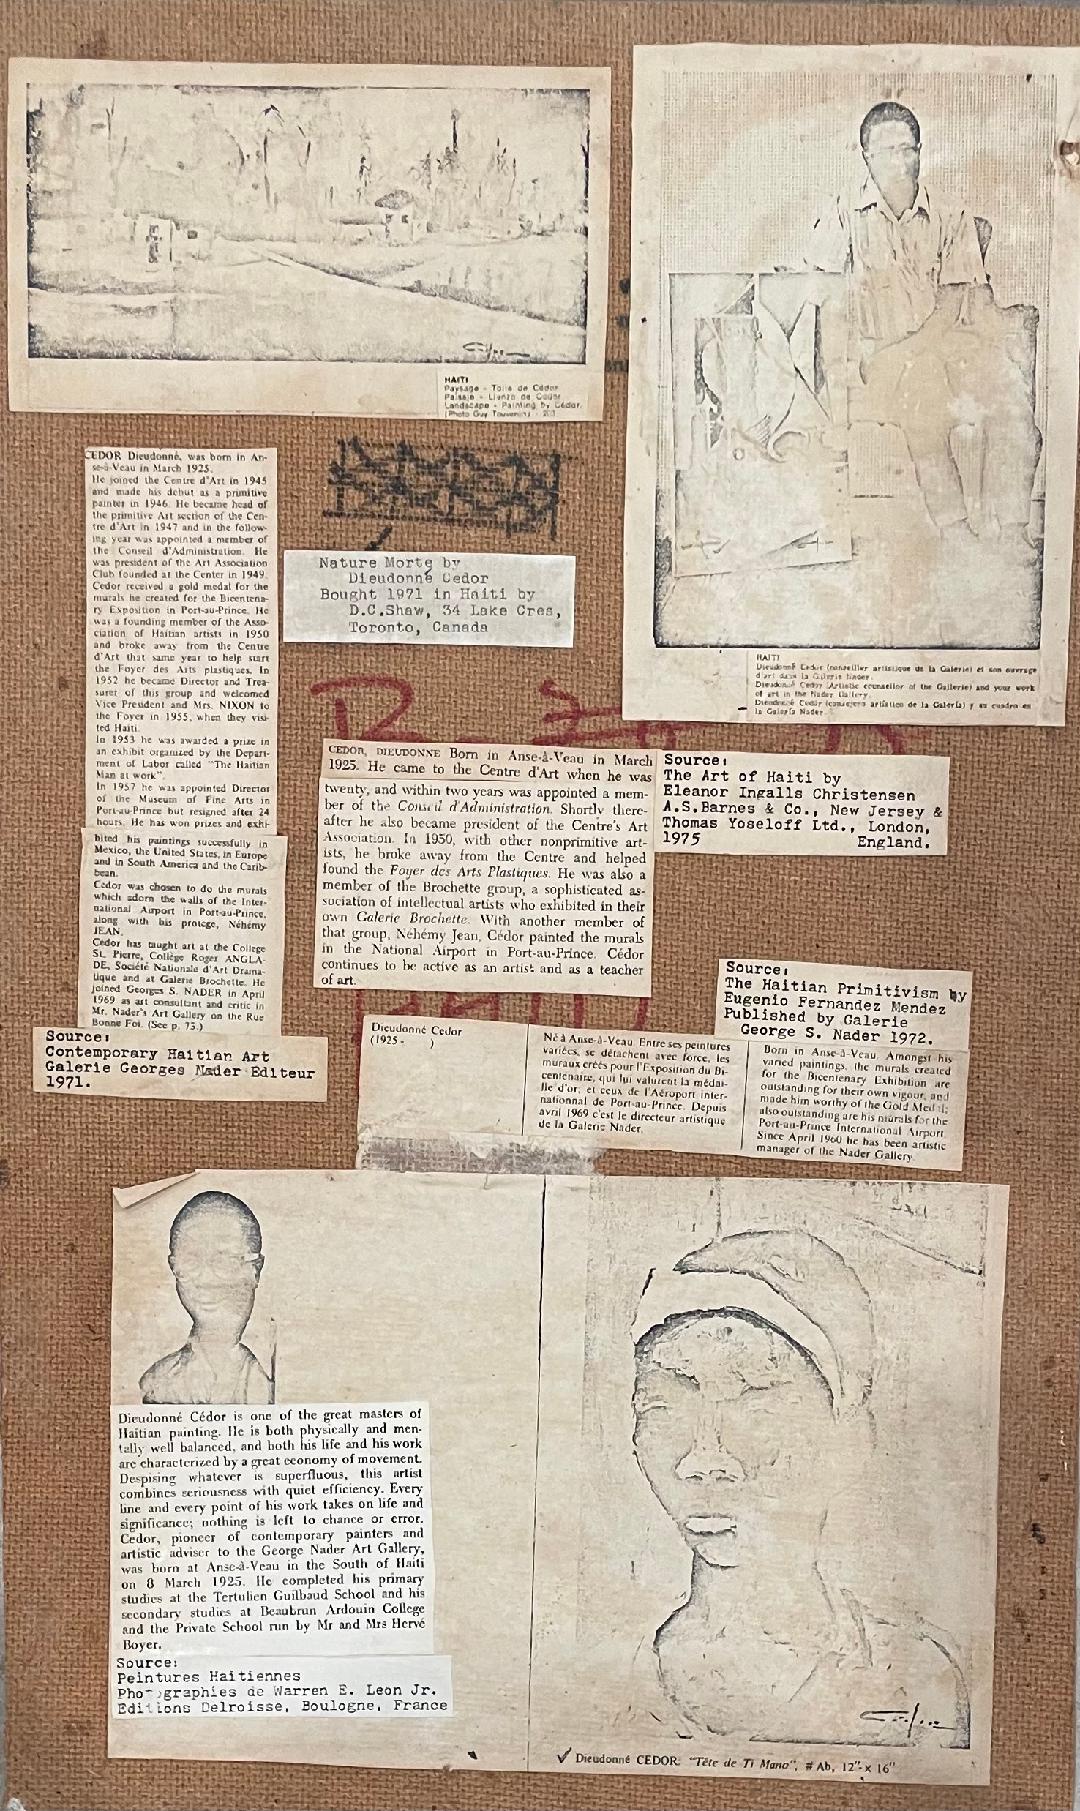 HAITI
Paysage - Toile de Cédor
Paisaje - Lienzo de Cédor
Landscape - Painting by Cédor.
(Photo Guy Touvenin) - 203
HAITI
Dieudonné Cédor (conseiller artistique de la Galerie) et son ouvrage
d'art dans la Galerie Nader.
Dieudonné Cédor (Artistic counsellor of the Gallerie) and your work
of art in the Nader Gallery.
Dieudonné Cédor (consejero artístico de la Galería) y su cuadro en
la Galería Nader.
CEDOR Dieudonné, was born in An-
se-à-Veau in March 1925.
He joined the Centre d'Art in 1945
and made his debut as a primitive
painter in 1946. He became head of
the primitive Art section of the Cen-
tre d'Art in 1947 and in the follow-
ing year was appointed a member of
the Conseil d'Administration. He
was president of the Art Association
Club founded at the Center in 1949.
Cedor received a gold medal for the
murals he created for the Bicentena-
ry Exposition in Port-au-Prince. He
was a founding member of the Asso-
ciation of Haitian artists in 1950
and broke away from the Centre
d'Art that same year to help start
the Foyer des Arts plastiques. In
1952 he became Director and Trea-
surer of this group and welcomed
Vice President and Mrs. NIXON to
the Foyer in 1955, when they visi-
ted Haiti.
In 1953 he was awarded a prize in
an exhibit organized by the Depart-
ment of Labor called "The Haitian
Man at work".
In 1957 he was appointed Director
of the Museum of Fine Arts in
Port-au-Prince but resigned after 24
hours. He has won prizes and exhi-
bited his paintings successfully in
Mexico, the United States, in Europe
and in South America and the Carib-
bean.
Cedor was chosen to do the murals
which adorn the walls of the Inter-
national Airport in Port-au-Prince,
along with his protege, Néhémy
JEAN.
Cedor has taught art at the College
St. Pierre, Collège Roger ANGLA-
DE, Société Nationale d'Art Drama-
tique and at Galerie Brochette. He
joined Georges S. NADER in April
1969 as art consultant and critic in
Mr. Nader's Art Gallery on the Rue
Bonne Foi. (See p. 73.)
Source:
Contemporary Haitian Art
Galerie Georges Nader Editeur
1971.
Nature Morte by
Dieudonne Cedor
Bought 1971 in Haiti by
D.C.Shaw, 34 Lake Cres,
Toronto, Canada
CEDOR, DIEUDONNE Born in Anse-à-Veau in March
1925. He came to the Centre d'Art when he was
twenty, and within two years was appointed a mem-
ber of the Conseil d'Administration. Shortly there-
after he also became president of the Centre's Art
Association. In 1950, with other nonprimitive art-
ists, he broke away from the Centre and helped
found the Foyer des Arts Plastiques. He was also a
member of the Brochette group, a sophisticated as-
sociation of intellectual artists who exhibited in their
own Galerie Brochette. With another member of
that group, Néhémy Jean, Cédor painted the murals
in the National Airport in Port-au-Prince. Cédor
continues to be active as an artist and as a teacher
of art.
Source:
The Art of Haiti by
Eleanor Ingalls Christensen
A.S.Barnes & Co., New Jersey &
Thomas Yoseloff Ltd., London,
1975 England.
Source:
The Haitian Primitivism by
Eugenio Fernandez Mendez
Published by Galerie
George S. Nader 1972.
Dieudonné Cedor
(1925 - )
Né à Anse-à-Veau. Entre ses peintures
variées, se détachent avec force, les
muraux créés pour l'Exposition du Bi-
centenaire, qui lui valurent la médai-
lle d'or; et ceux de l'Aéroport inter-
nationnal de Port-au-Prince. Depuis
avril 1969 c'est le directeur artistique
de la Galerie Nader.
Born in Anse-à-Veau. Amongst his
varied paintings, the murals created
for the Bicentenary Exhibition are
outstanding for their own vigour, and
made him worthy of the Gold Medal;
also outstanding are his murals for the
Port-au-Prince International Airport.
Since April 1960 he has been artistic
manager of the Nader Gallery.
Dieudonné Cédor is one of the great masters of
Haitian painting. He is both physically and men-
tally well balanced, and both his life and his work
are characterized by a great economy of movement.
Despising whatever is superfluous, this artist
combines seriousness with quiet efficiency. Every
line and every point of his work takes on life and
significance; nothing is left to chance or error.
Cedor, pioneer of contemporary painters and
artistic adviser to the George Nader Art Gallery,
was born at Anse-à-Veau in the South of Haiti
on 8 March 1925. He completed his primary
studies at the Tertulien Guilbaud School and his
secondary studies at Beaubrun Ardouin College
and the Private School run by Mr and Mrs Hervé
Boyer.
Source:
Peintures Haitiennes
Photographies de Warren E. Leon Jr.
Editions Delroisse, Boulogne, France
✓ Dieudonné CEDOR: "Tête de Ti Mano", # Ab, 12"- x 16"